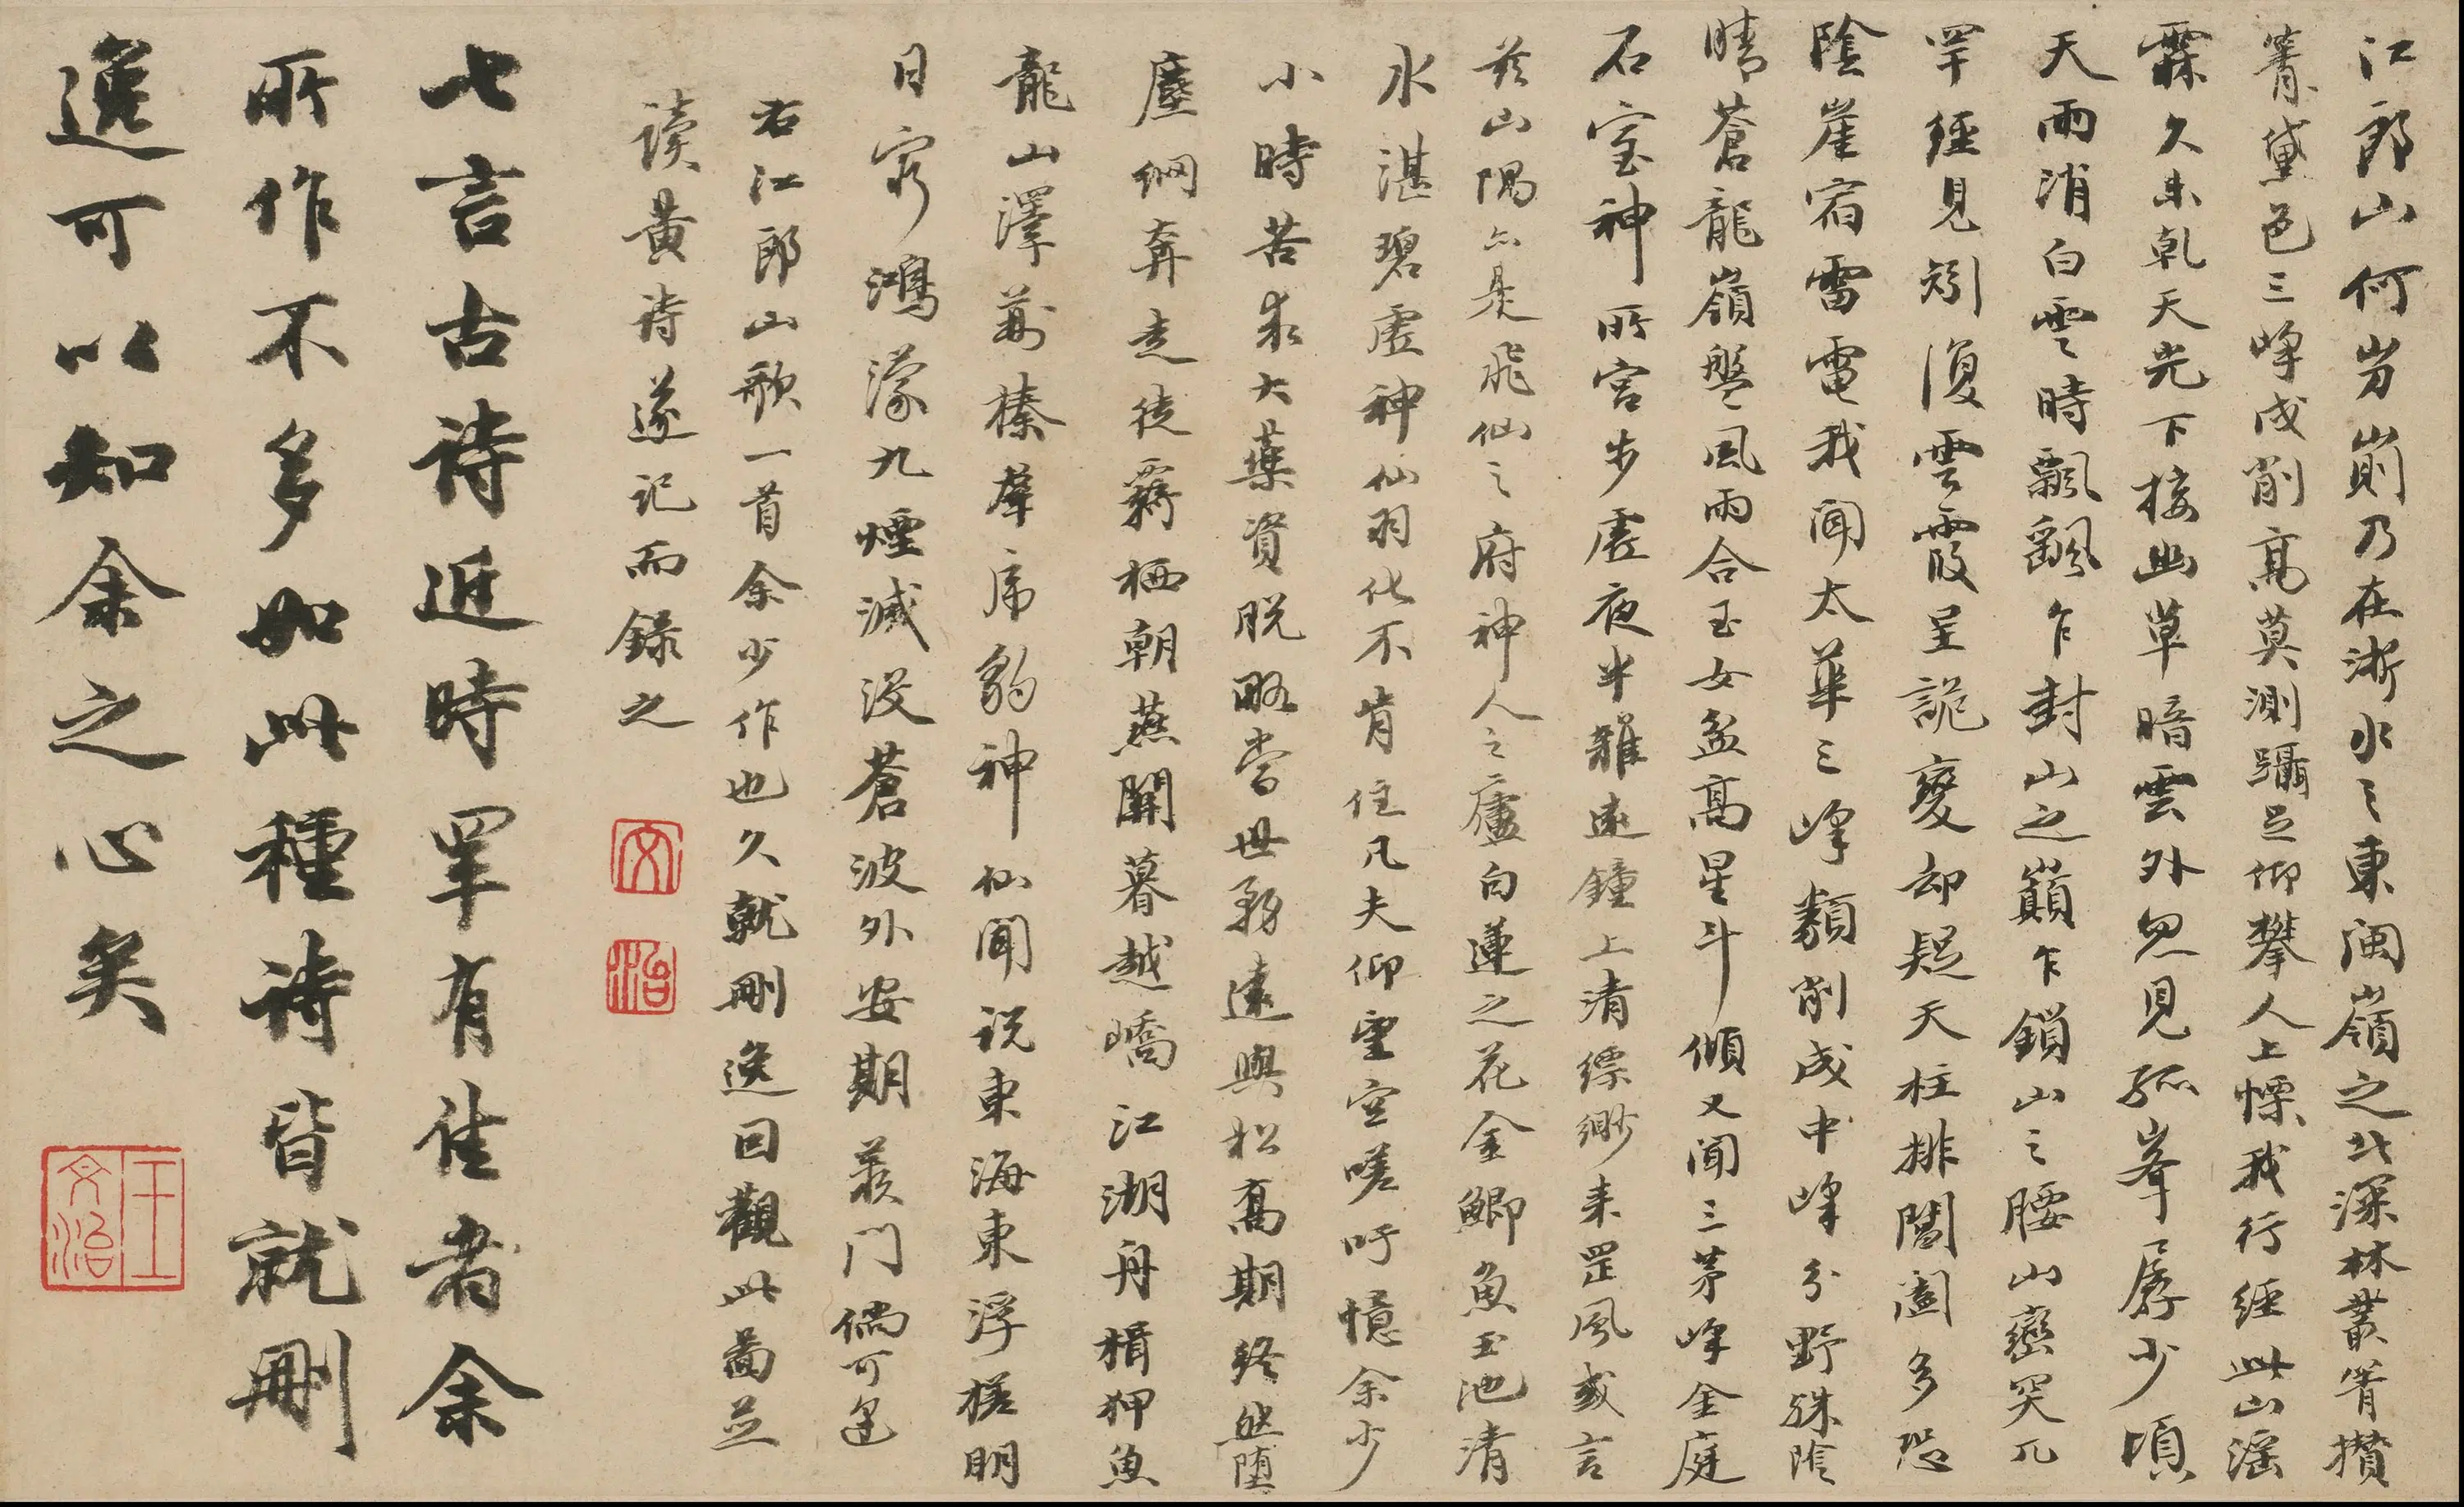 江郎山何岃崱乃在浙水之東閩嶺之北深林叢箐攢
箐黛色三峰戍削高莫測躡足仰攀人上慄我行經此山滛
霖久未乾天光下接幽草暗雲外忽見孤峯孱少頃
天雨消白雲時飄飄乍封山之巔乍鎖山之腰山巒突兀
罕經見矧復雲霞呈詭變却疑天柱排闔闔多恐
陰崖宿雷電我聞太華三峰類削成中峰分野殊陰
晴蒼龍嶺盤風雨合玉女盆高星斗傾又聞三茅峰金庭
石室神所宫步虛夜半雜遠鐘上清縹緲来罡風或言
茲山隅亦是飛仙之府神人之廬白蓮之花金鯽魚玉池清
水湛碧虛神仙羽化不肯住凡夫仰望空嗟吁憶余少
小時苦求大藥資脱略當世務遠與松高期終然墮
塵網奔走徒羇栖朝燕關暮越嶠江湖舟楫狎魚
龍山澤莽榛羣席豹神仙聞説東海東浮槎明
日窮鴻濛九煙滅没蒼波外安期羨門儻可逢
右江郎山歌一首余少作也久就刪逸回觀此圖並
读黄诗遂记而録之
文
治
七言古詩近時罕有佳者余
所作不多如此種詩皆就刪
逸可以知余之心矣
王文治